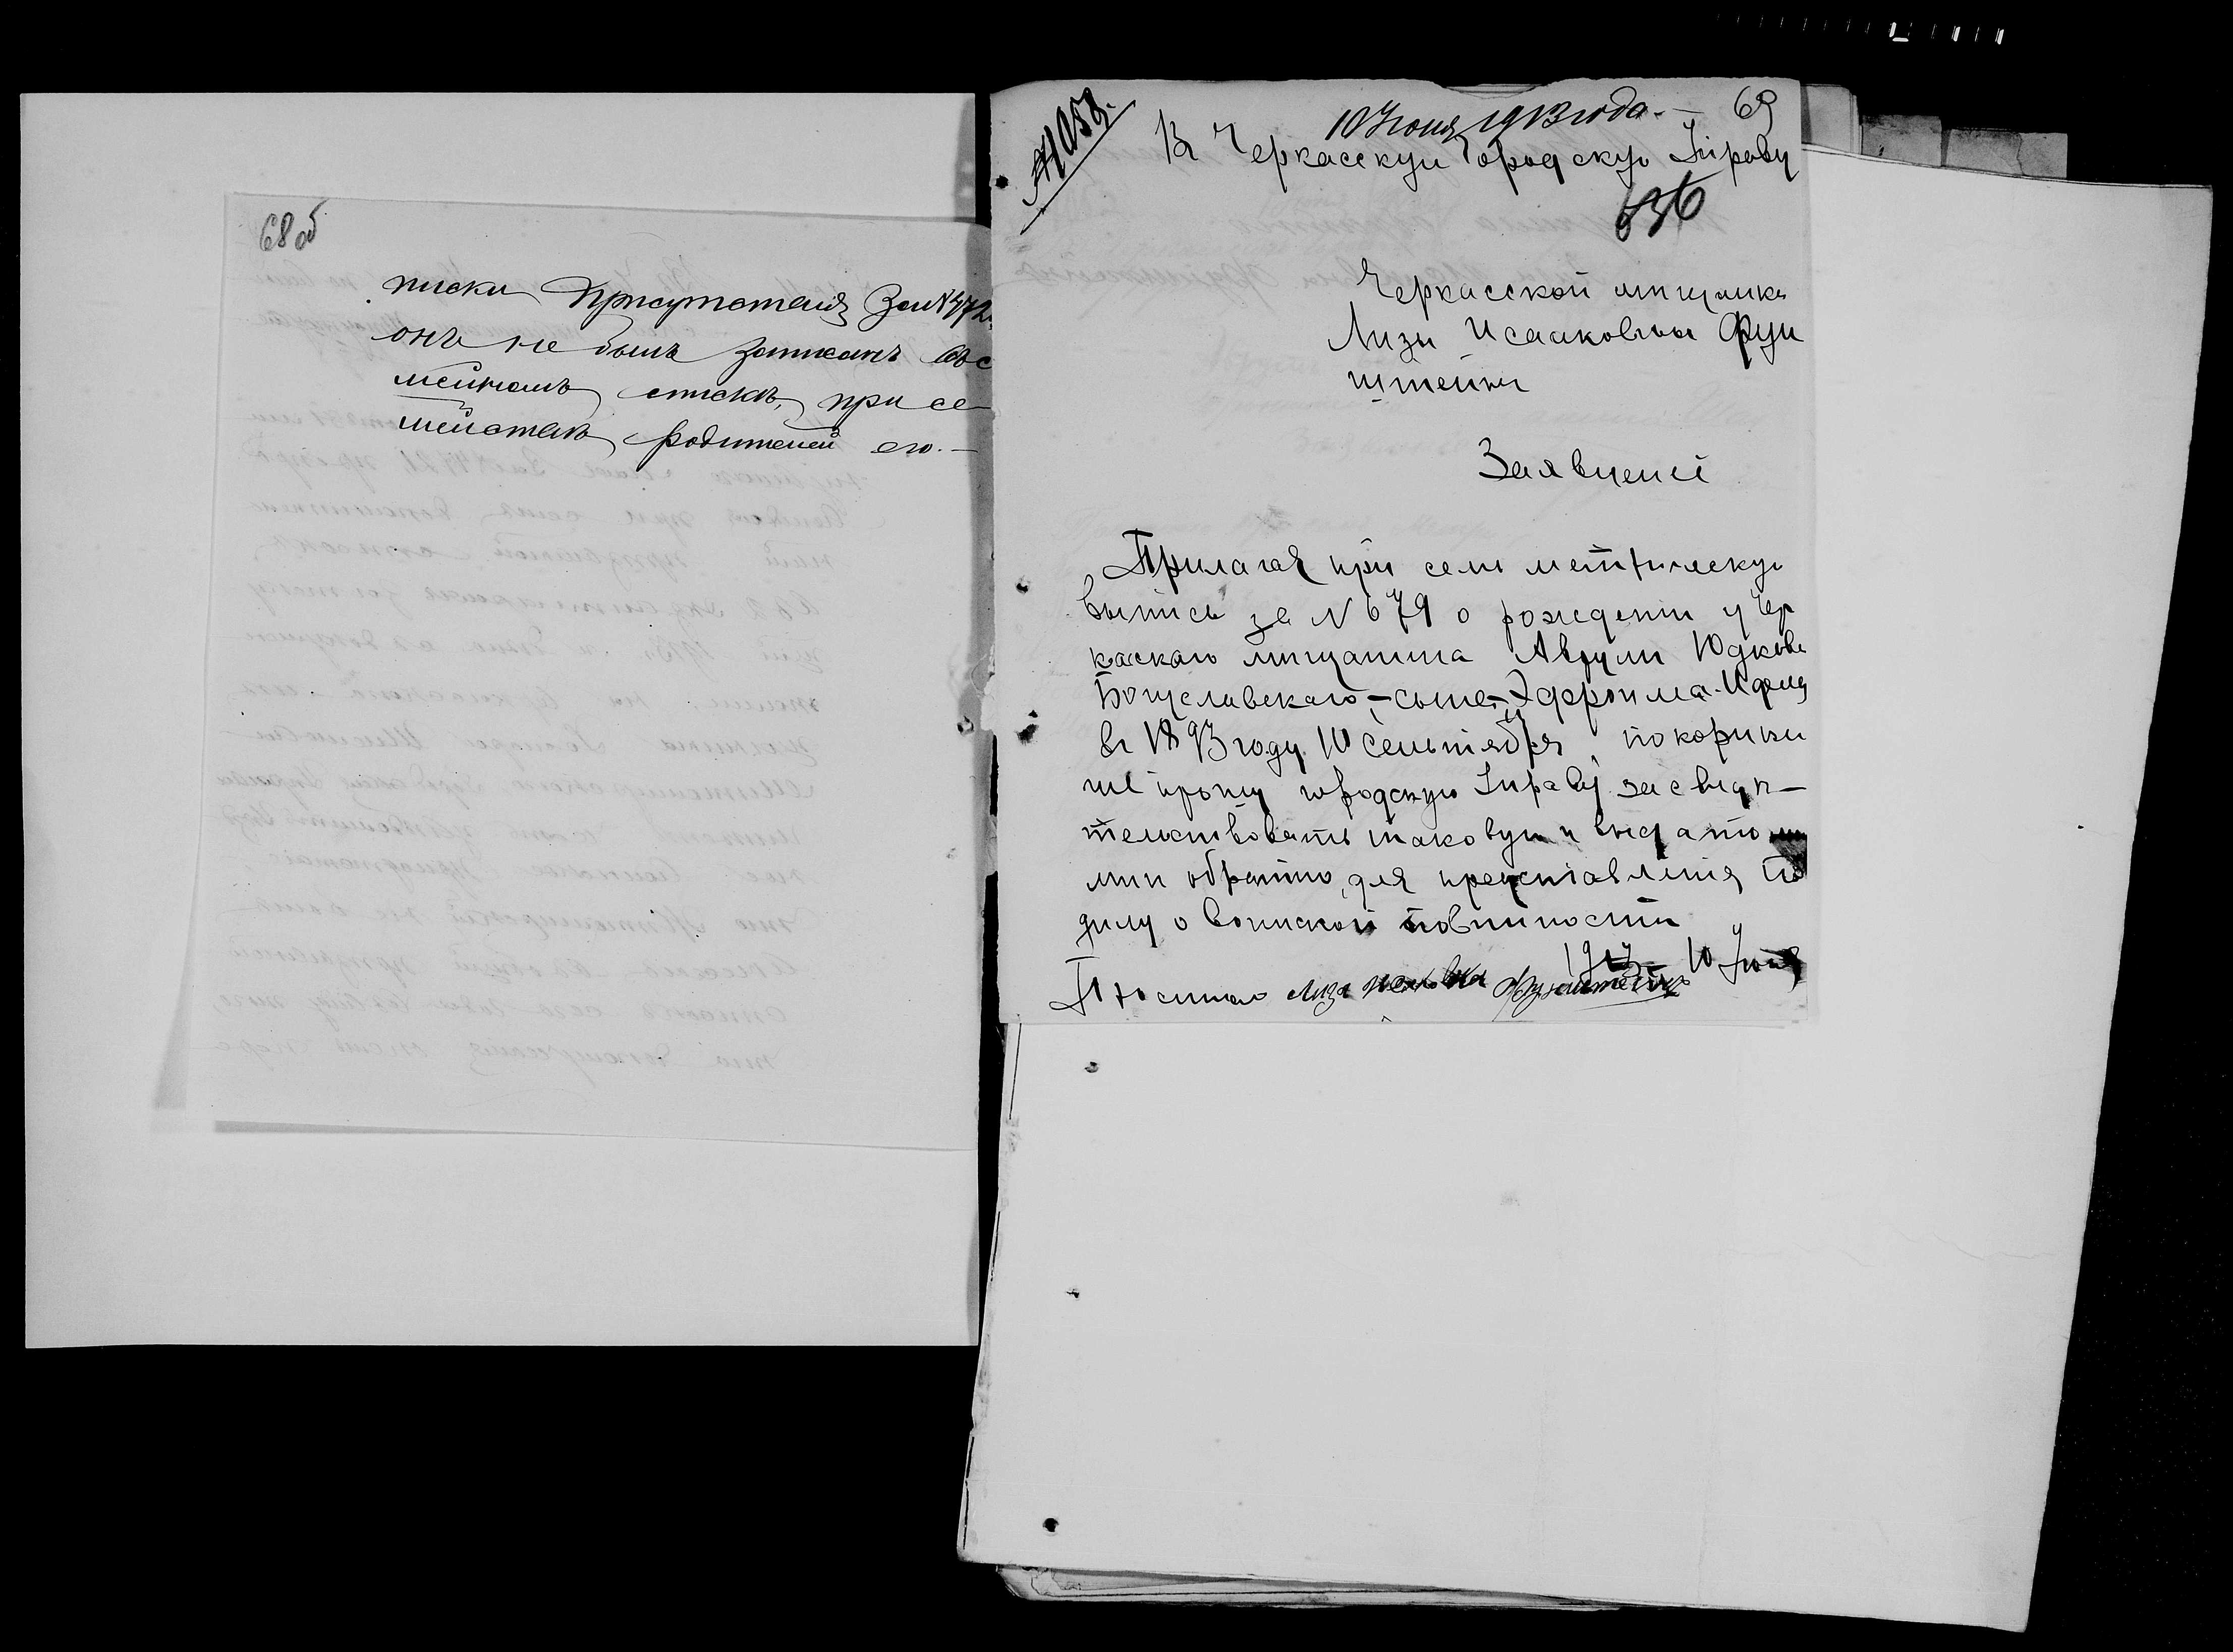 68 об
писки Присутствія За №472
онъ не былъ записанъ въ се
мейномъ спискѣ, при се
мействѣ родителей его.—
10 Іюня 1913 года.— 69
В Черкасскую Городскую Управу
636
Черкасской мищанки
Лизи Исааковны Фун
штейнъ
Заявление
Прилагая при семъ метрическую
выпись за N 679 о рождении у Чер
каскаго мищанина Аврума Юдкова
Богуславскаго,—сына—Эфроима-
в 1893 году 10 сентября, покорний
ше прошу городскую Управу засвидѣ—
тельствовать таковую и выдать
мни обратно, для представления по
дилу о воинской повинности
1913 10 Июня
Лиза